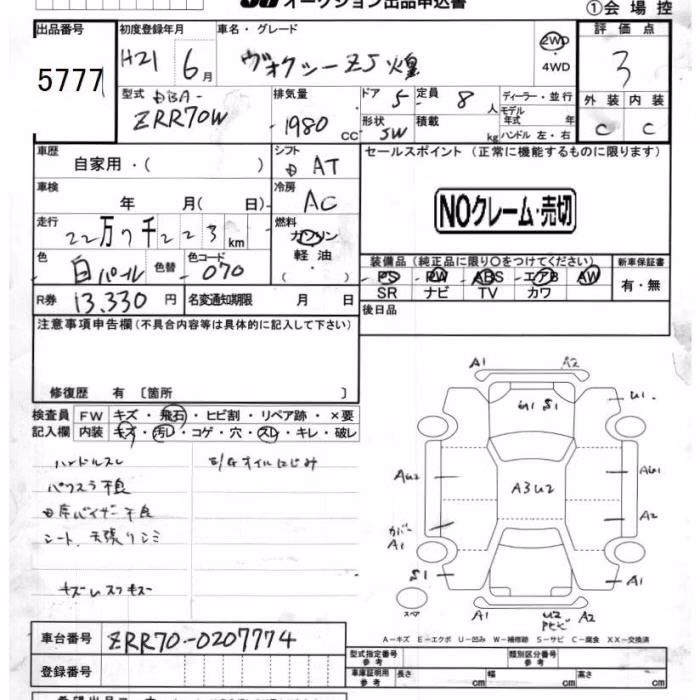 オークション出品申込書
①会場控
出品番号
5777
初度登録年月
H21 6月
車名・グレード
ヴォクシーZS煌
2WD
4WD
評価点
3
外装 内装
C C
型式
DBA-
ZRR70W
排気量
1980 cc
ドア 5
定員 8人
形状 SW
積載 kg
ディーラー・並行
モデル
年式 年
ハンドル 左・右
車歴
自家用・( )
シフト
AT
車検
年 月( 日)
冷房
AC
走行
22万7千223km
燃料
ガソリン
軽油・
( )
色
白パール
色替
色コード
070
R券 13,330円
名変通知期限 月 日
セールスポイント (正常に機能するものに限ります)
NOクレーム・売切
装備品 (純正品に限り○をつけてください)
PS PW ABS エアB AW
SR ナビ TV カワ
新車保証書
有・無
後日品
注意事項申告欄(不具合内容等は具体的に記入して下さい)
修復歴 有 〔箇所 〕
検査員 FW キズ・飛石・ヒビ割・リペア跡・×要
記入欄 内装 キズ・汚レ・コゲ・穴・スレ・キレ・破レ
ハンドルスレ
E/Gオイルにじみ
パワスラ不良
バイザー不良
シート、天張りシミ
A1 A2
U1
S1
AU2
A3U2
AU1
A2
カバー
A1
S1
A1
スペア
A1
U2
A2
A-キズ E-エクボ U-凹み W-補修跡 S-サビ C-腐食 XX-交換済
車台番号 ZRR70-0207774
登録番号
型式指定番号
参考
類別区分番号
参考
車庫証明用
参考
長さ cm 幅 cm 高さ cm